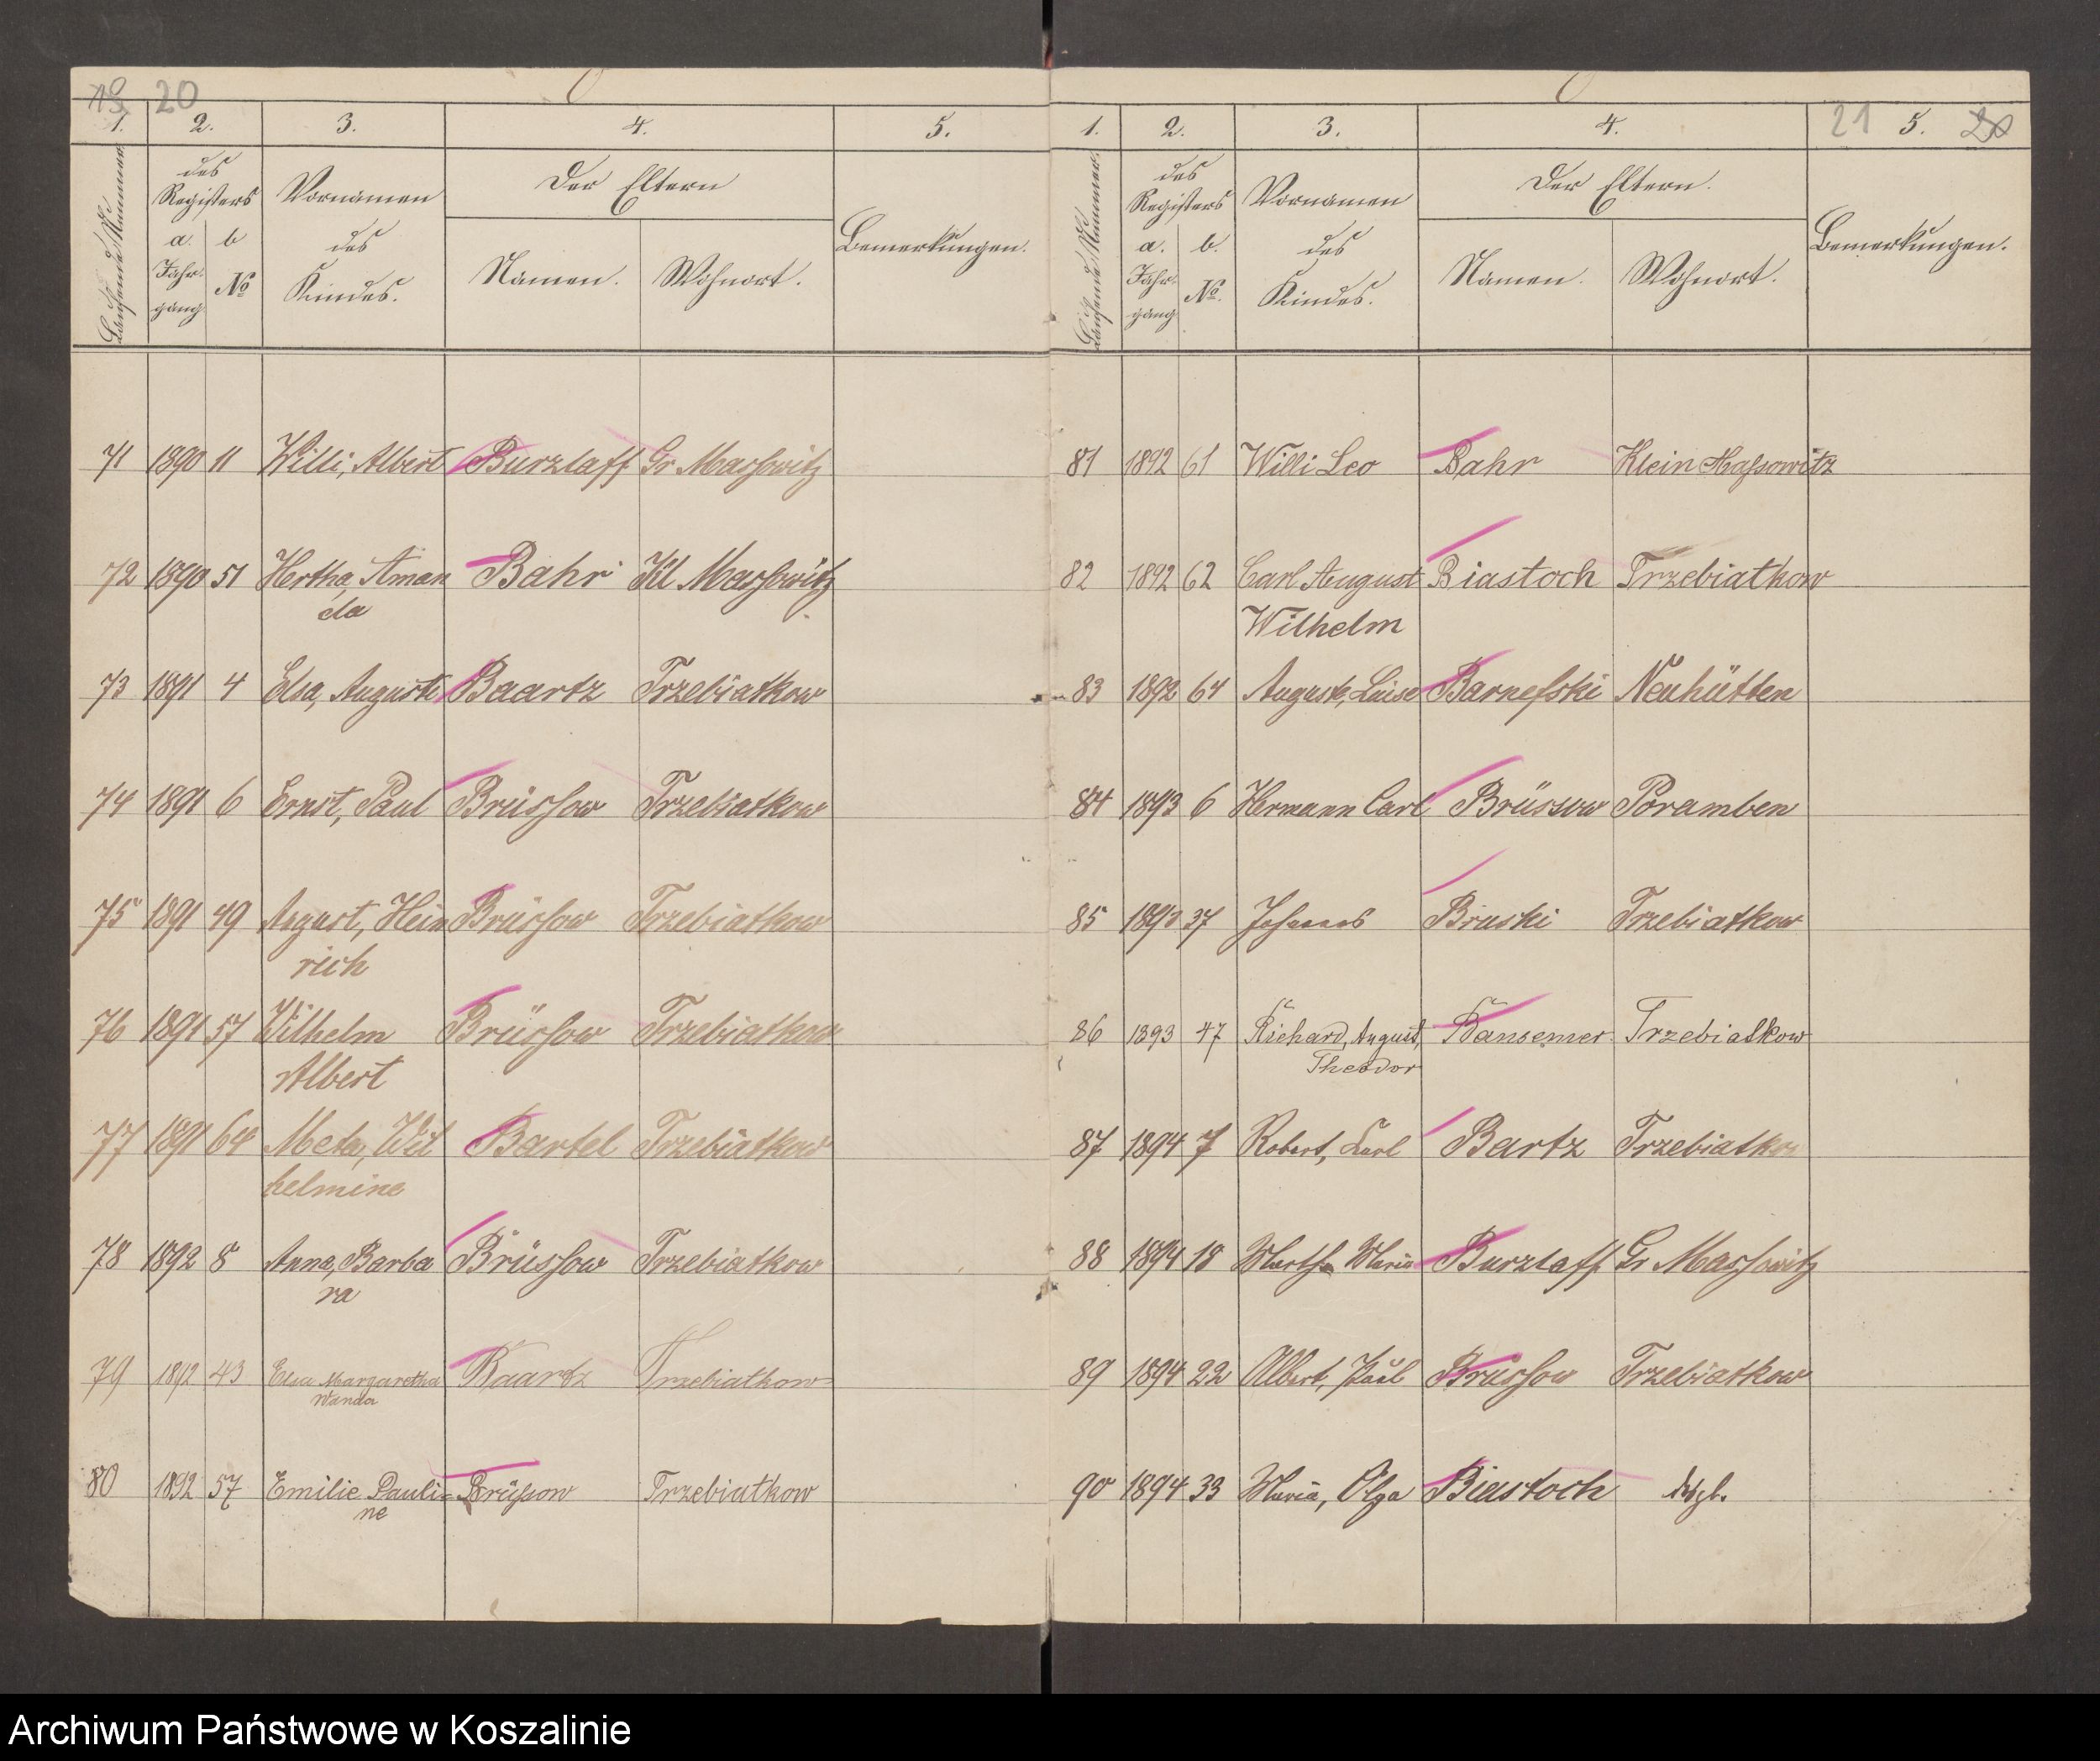 19 20
1. 2. 3. 4. 5.
Laufende Nummer.
des
Registers
a. b
Jahr-
gang
No
Vornamen
des
Kindes.
Der Eltern
Namen. Wohnort.
Bemerkungen.
71 1890 11 Willi, Albert Burzlaff Gr Massowitz
72 1890 51 Hertha, Aman Bahr Kl Massowitz
da
73 1891 4 Elsa, Auguste Baartz Trzebiatkow
74 1891 6 Ernst, Paul Brüssow Trzebiatkow
75 1891 49 August, Hein Brüssow Trzebiatkow
rich
76 1891 57 Wilhelm Brüssow Trzebiatkow
Albert
77 1891 64 Meta, Wil Bartel Trzebiatkow
helmine
78 1892 8 Anna, Barba Brüssow Trzebiatkow
ra
79 1892 43 Elsa Margaretha Baartz Trzebiatkow
Wanda
80 1892 57 Emilie Pauli- Brüßow Trzebiatkow
ne
21 20
1. 2. 3. 4. 5.
Laufende Nummer.
des
Registers
a. b.
Jahr-
gang
No.
Vornamen
des
Kindes.
Der Eltern.
Namen. Wohnort.
Bemerkungen.
81 1892 61 Willi Leo Bahr Klein Maßowitz
82 1892 62 Carl August Biastoch Trzebiatkow
Wilhelm
83 1892 64 Auguste, Luise Barneßki Neuhütten
84 1893 6 Hermann Carl Brüssow Poramben
85 1893 37 Johannes Bruski Trzebiatkow
86 1893 47 Richard, August, Bansemer Trzebiatkow
Theodor
87 1894 7 Robert, Karl Bartz Trzebiatkow
88 1894 18 Martha Maria Burzlaff Gr Massowitz
89 1894 22 Albert, Paul Brüssow Trzebiatkow
90 1894 33 Maria, Olga Biastoch dsgl.
Archiwum Państwowe w Koszalinie